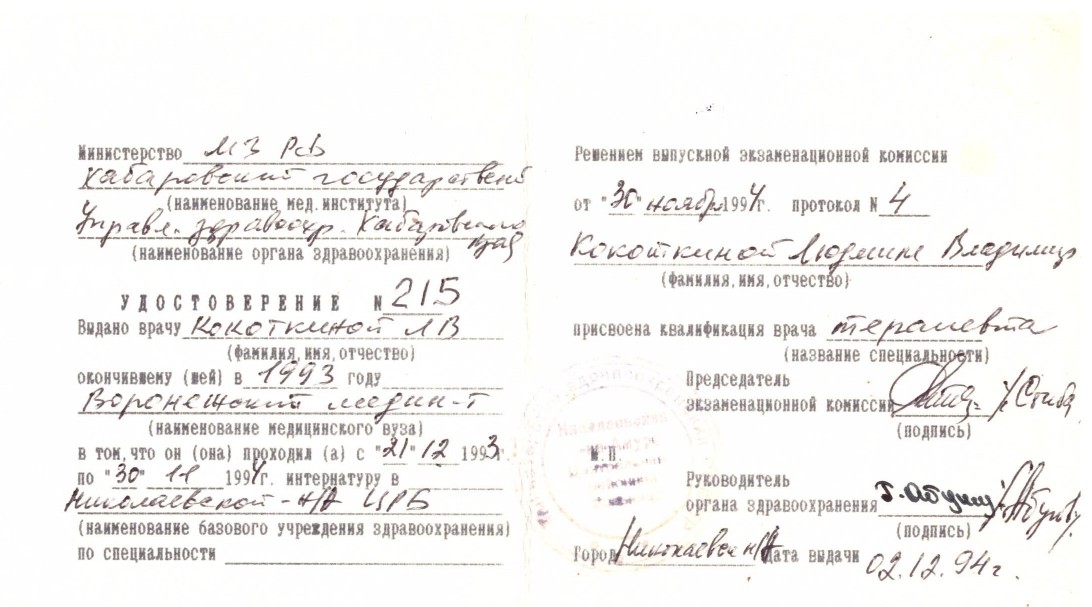 Министерство МЗ РФ
Хабаровский государствен
(наименование мед.института)
Управл. здравоохр. Хабаровского
края
(наименование органа здравоохранения)
УДОСТОВЕРЕНИЕ N 215
Выдано врачу Кокоткиной ЛВ
(фамилия, имя, отчество)
окончившему (шей) в 1993 году
Воронежский медин-т
(наименование медицинского вуза)
в том, что он (она) проходил (а) с "21" 12 1993г.
по "30" 11 1994г. интернатуру в
Николаевской-н/А ЦРБ
(наименование базового учреждения здравоохранения)
по специальности
Решением выпускной экзаменационной комиссии
от "30" ноября 1994г. протокол N 4
Кокоткиной Людмиле Владимир
(фамилия, имя, отчество)
присвоена квалификация врача терапевта
(название специальности)
Председатель
экзаменационной комиссии
(подпись)
М.П.
Руководитель
органа здравоохранения
(подпись)
Город Николаевск н/А Дата выдачи
02.12.94г.